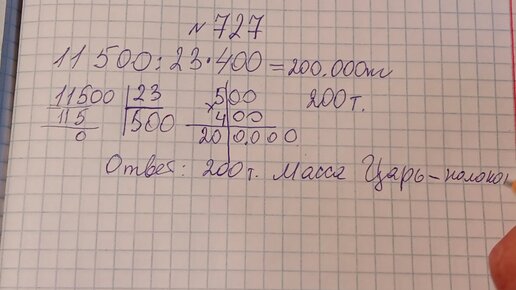 № 727
11 500 : 23 · 400 = 200.000 кг
11500 | 23
115 | 500
0
500
× 400
200.000
200т.
Ответ: 200т. Масса Царь-колокол